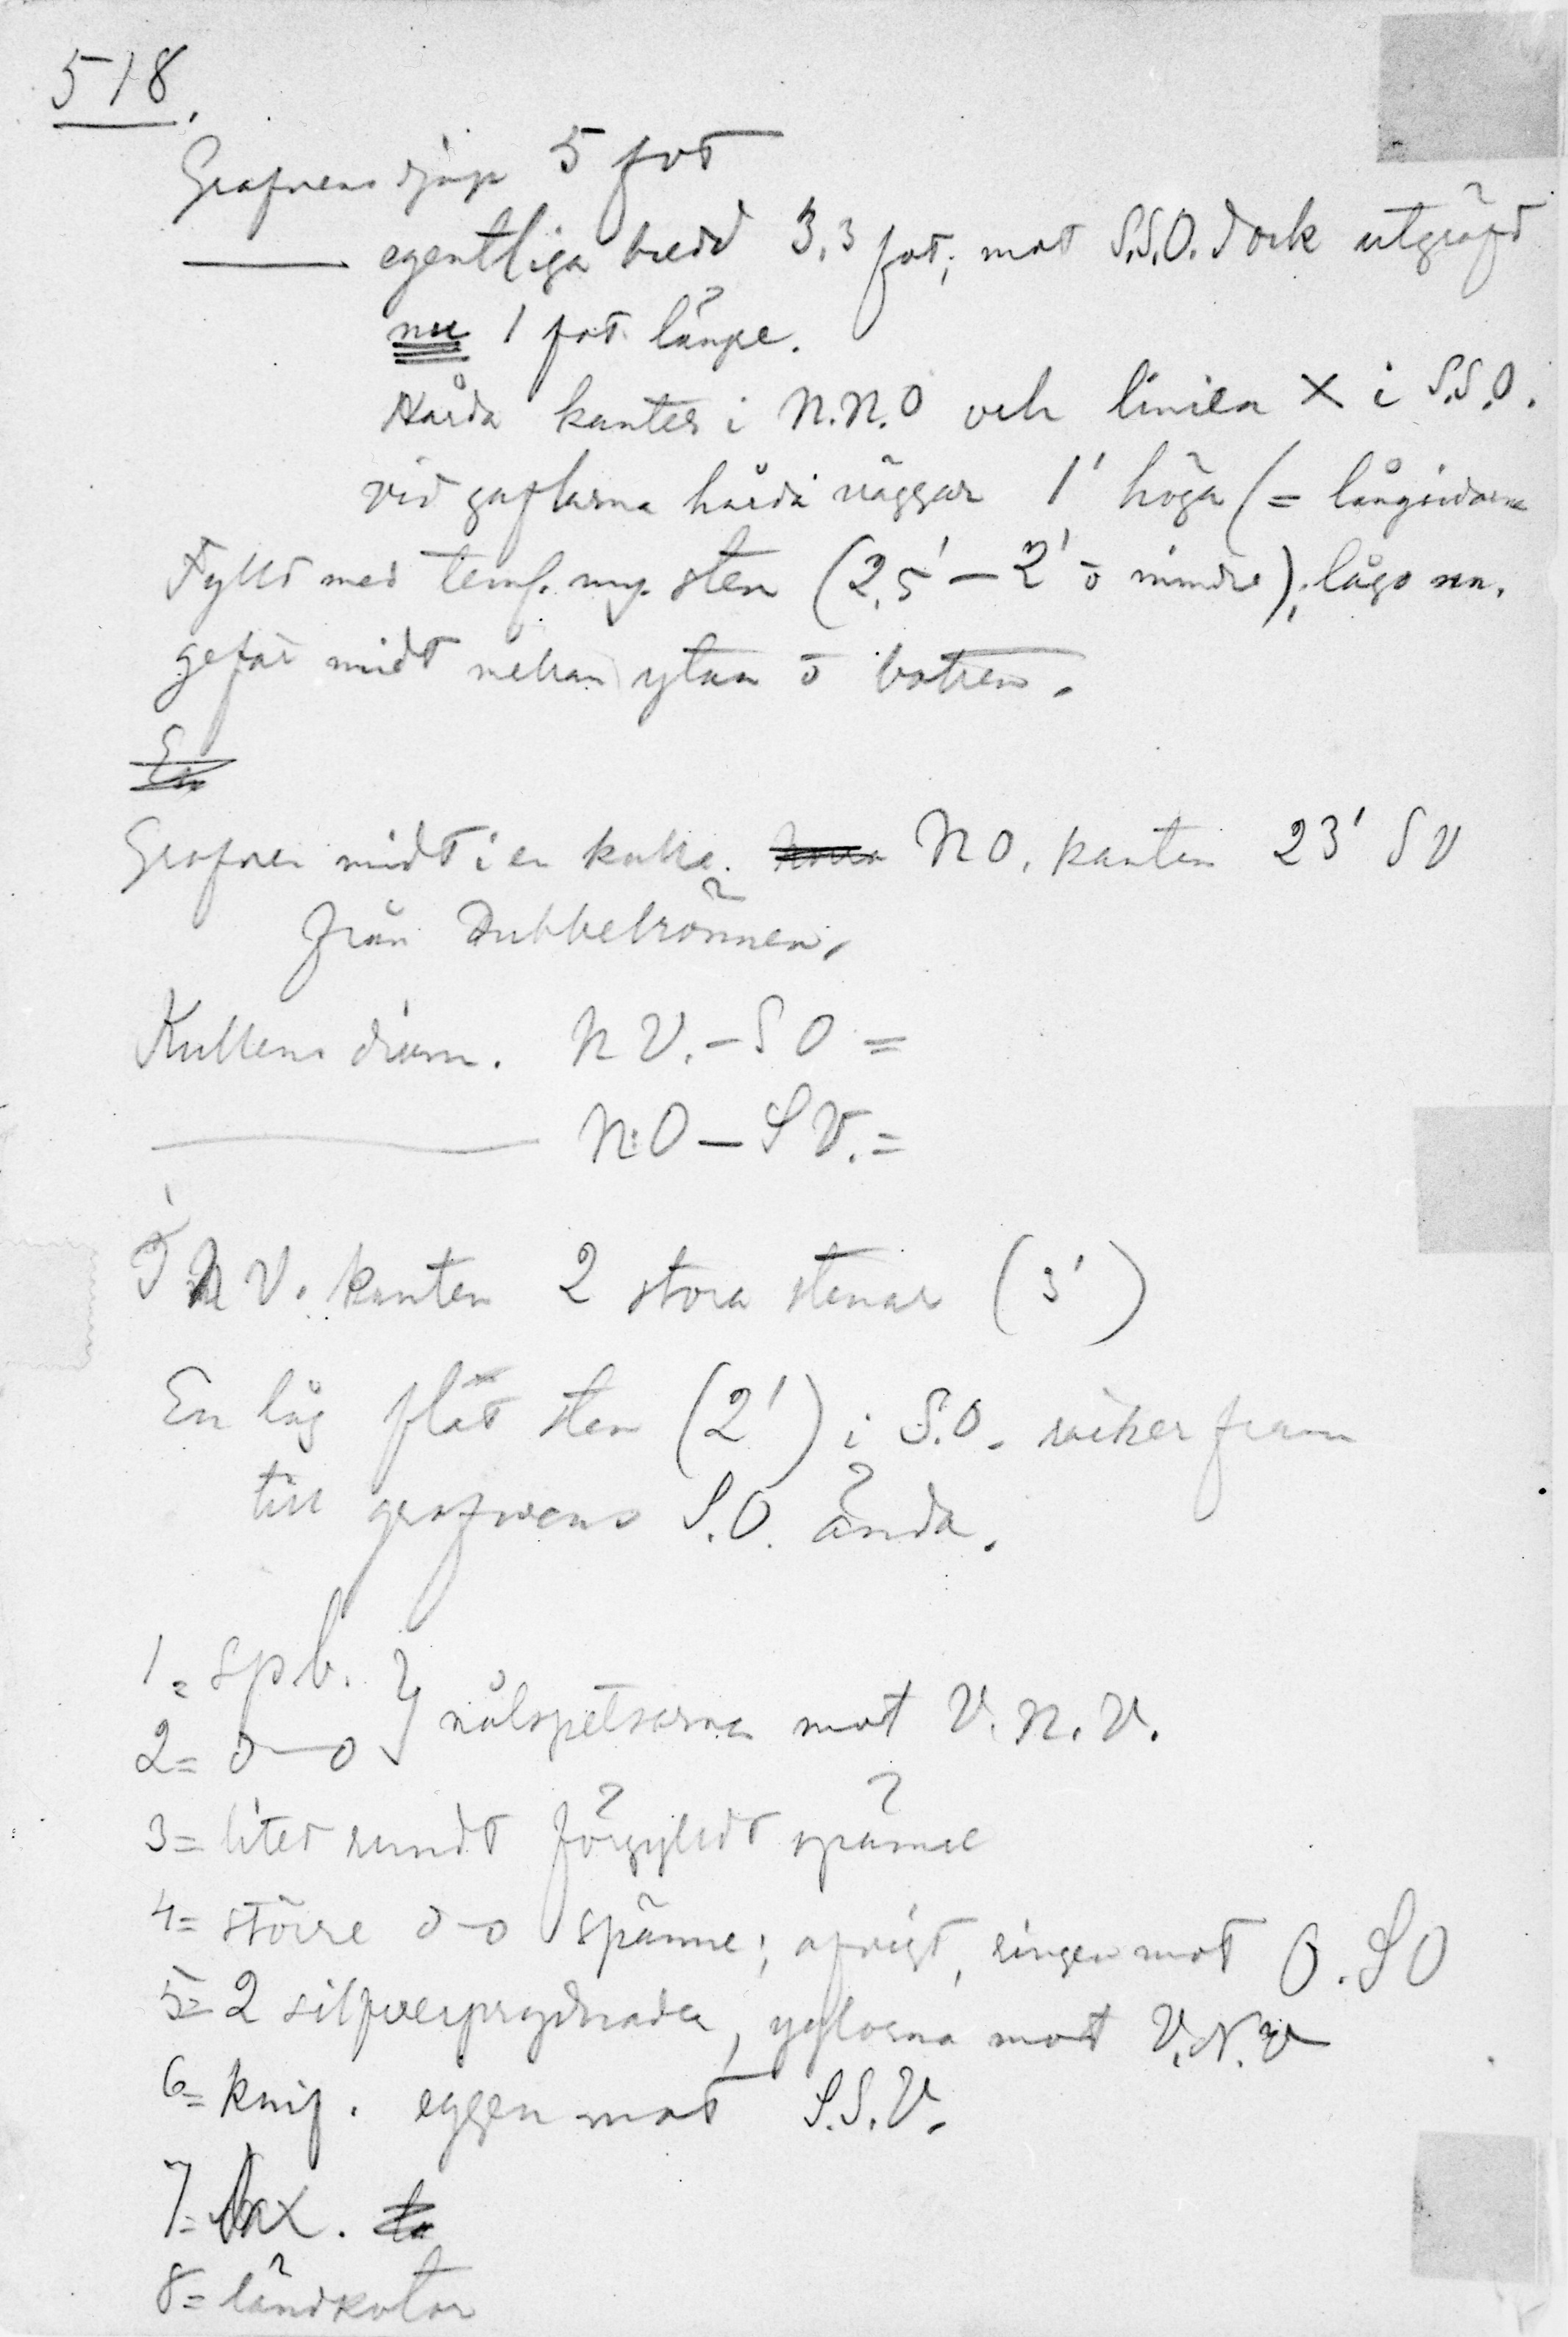 518.
Grafvens djup 5 fot
—— egentliga bredd 3,3 fot; mot S.S.O. dock utgräfd
nu 1 fot längre.
Hårda kanter i N.N.O och linien X i S.S.O.
vid gaflarna hårda väggar 1' höga (= långsidorna
Fylld med teml. myc. sten (2,5' – 2' o mindre); lågo un-
gefär midt mellan ytan o bottnen.
Grafven midt i en kulle. N O. kanten 23' S V
från Dubbelrönnen.
Kullens diam. N V. – S O =
—— N.O – S V. =
I N V. kanten 2 stora stenar (3')
En låg flat sten (2') i S.O. räcker fram
till grafvens S.O. ända.
1 = spb. } nålspetsarna mot V.N.V.
2 = o—o
3 = litet rundt förgyldt spänne
4 = större o–o spänne; afvigt, ringen mot O.SO
5 = 2 silfverprydnader, yglorna mot V.N.V
6 = knif. eggen mot S.S.V.
7 = sax.
8 = ländkotor